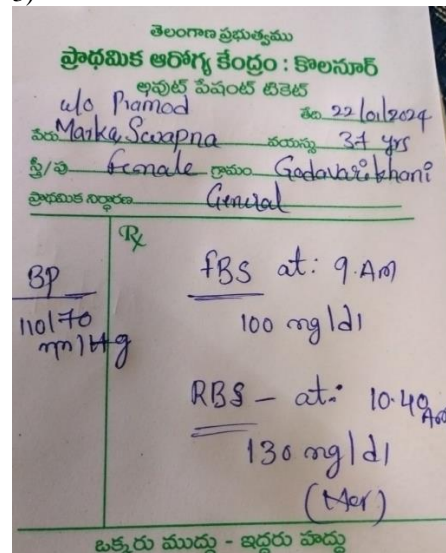 తెలంగాణ ప్రభుత్వము
ప్రాథమిక ఆరోగ్య కేంద్రం : కొలనూర్
అవుట్ పేషంట్ టికెట్
w/o Pramod తేది 22/01/2024
పేరు Marka Swapna వయస్సు 37 yrs
స్త్రీ/పు female గ్రామం Godavarikhani
ప్రాథమిక నిర్ధారణ General
Rx
BP
110/70
mm/Hg
FBS at: 9.AM
100 mg/dl
RBS - at: 10.40 AM
130 mg/dl
ఒక్కరు ముద్దు - ఇద్దరు హద్దు